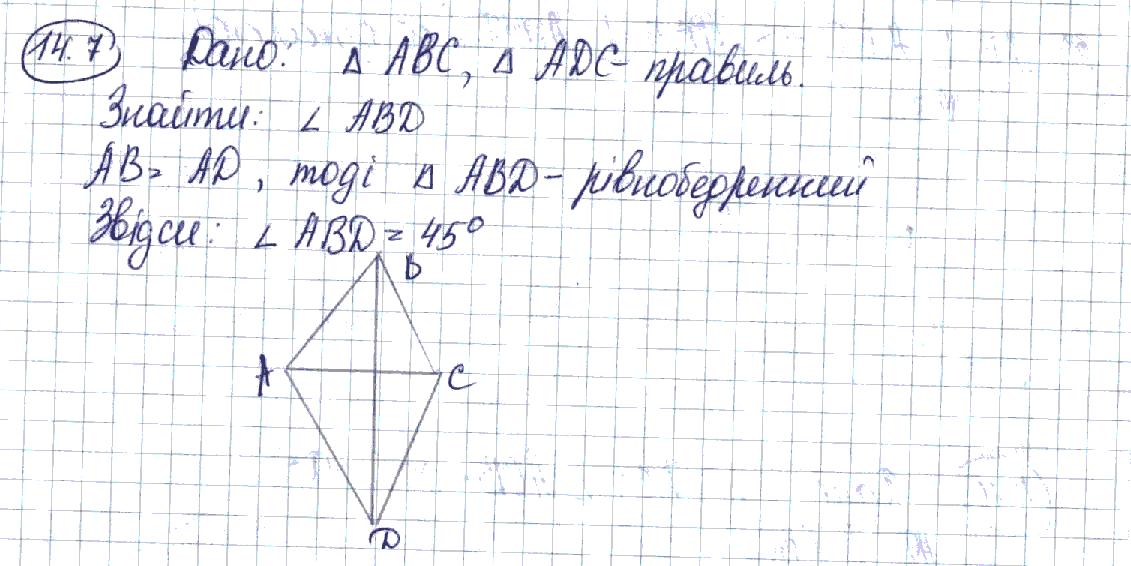 14.7 Дано: Δ ABC, Δ ADC - правиль.
Знайти: ∠ ABD
AB = AD, тоді Δ ABD - рівнобедренний
Звідси: ∠ ABD = 45°
B
A
C
D